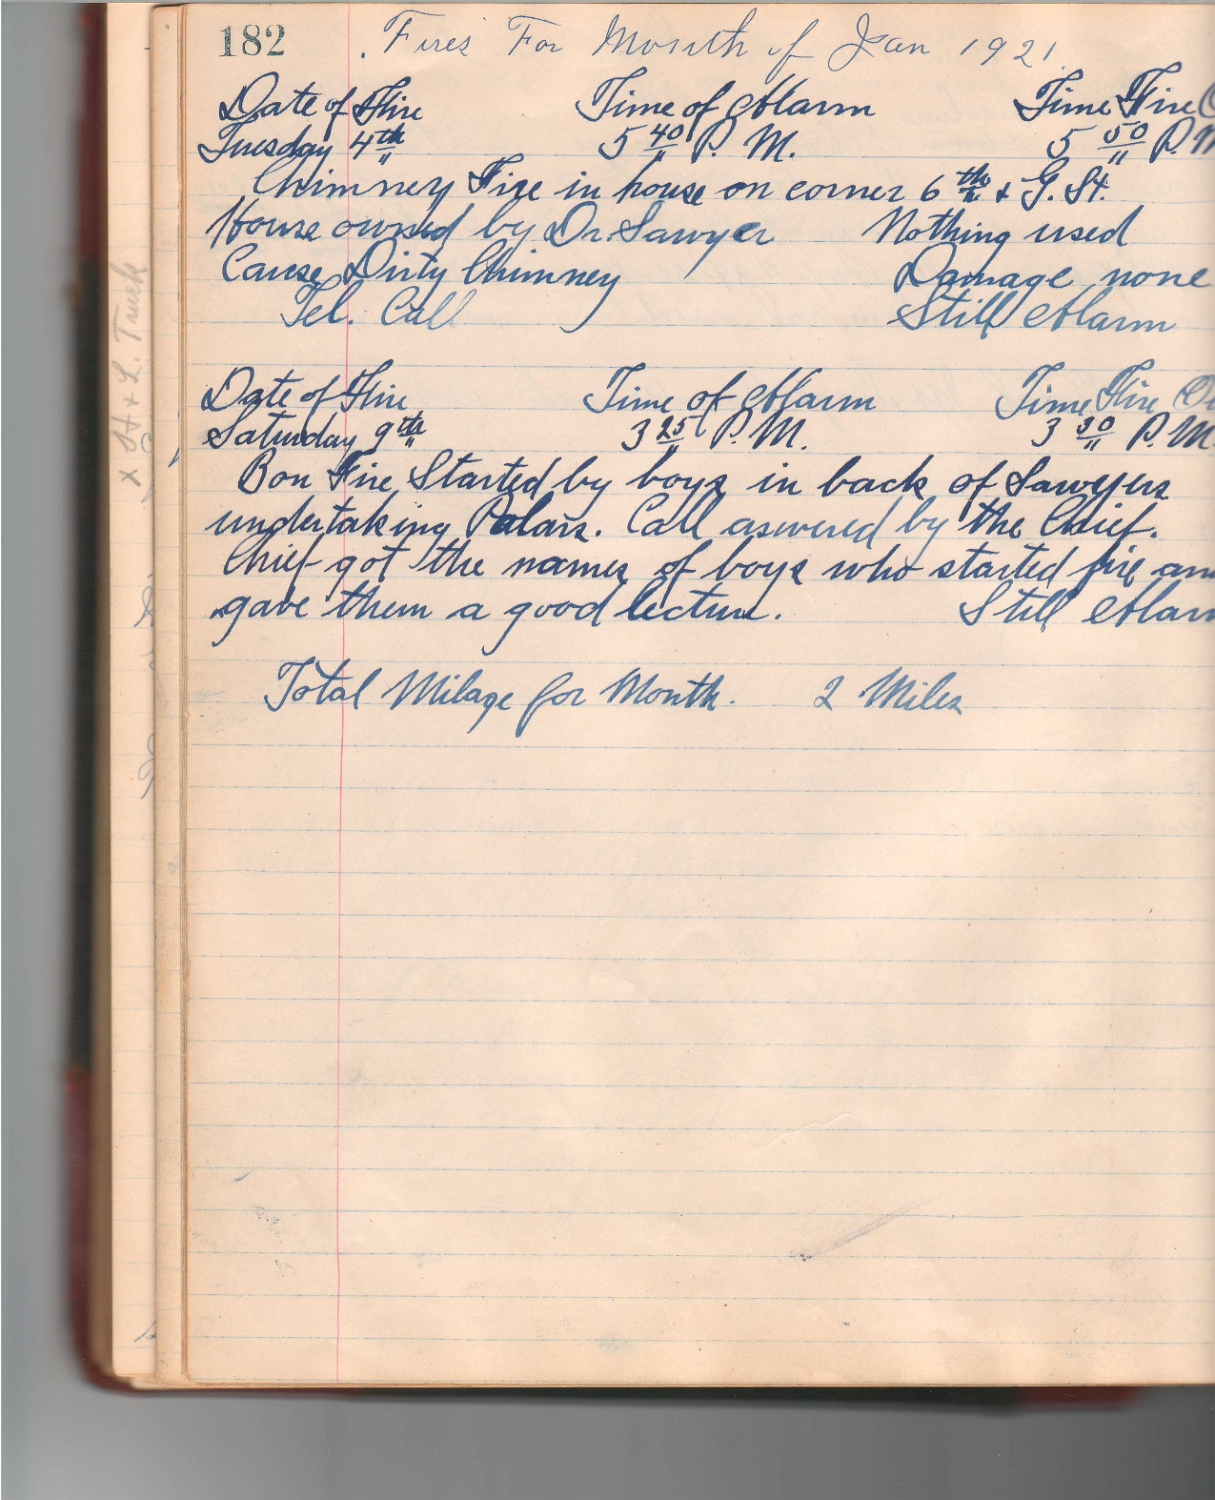 182 Fires For Month of Jan 1921.
Date of Fire Time of Alarm Time Fire
Tuesday 4th 5 40 P. M. 5 50 P. M
Chimney Fire in house on corner 6th & G. St.
House owned by Dr. Sawyer Nothing used
Cause Dirty Chimney Damage none
Tel. Call Still Alarm
Date of Fire Time of Alarm Time Fire
Saturday 9th 3 25 P. M. 3 30 P. M.
Bon Fire Started by boys in back of Sawyers
undertaking Palars. Call aswered by the Chief.
Chief got the names of boys who started fire an
gave them a good lecture. Still Alarm
Total Milage for Month. 2 Miles
x H & L. Truck